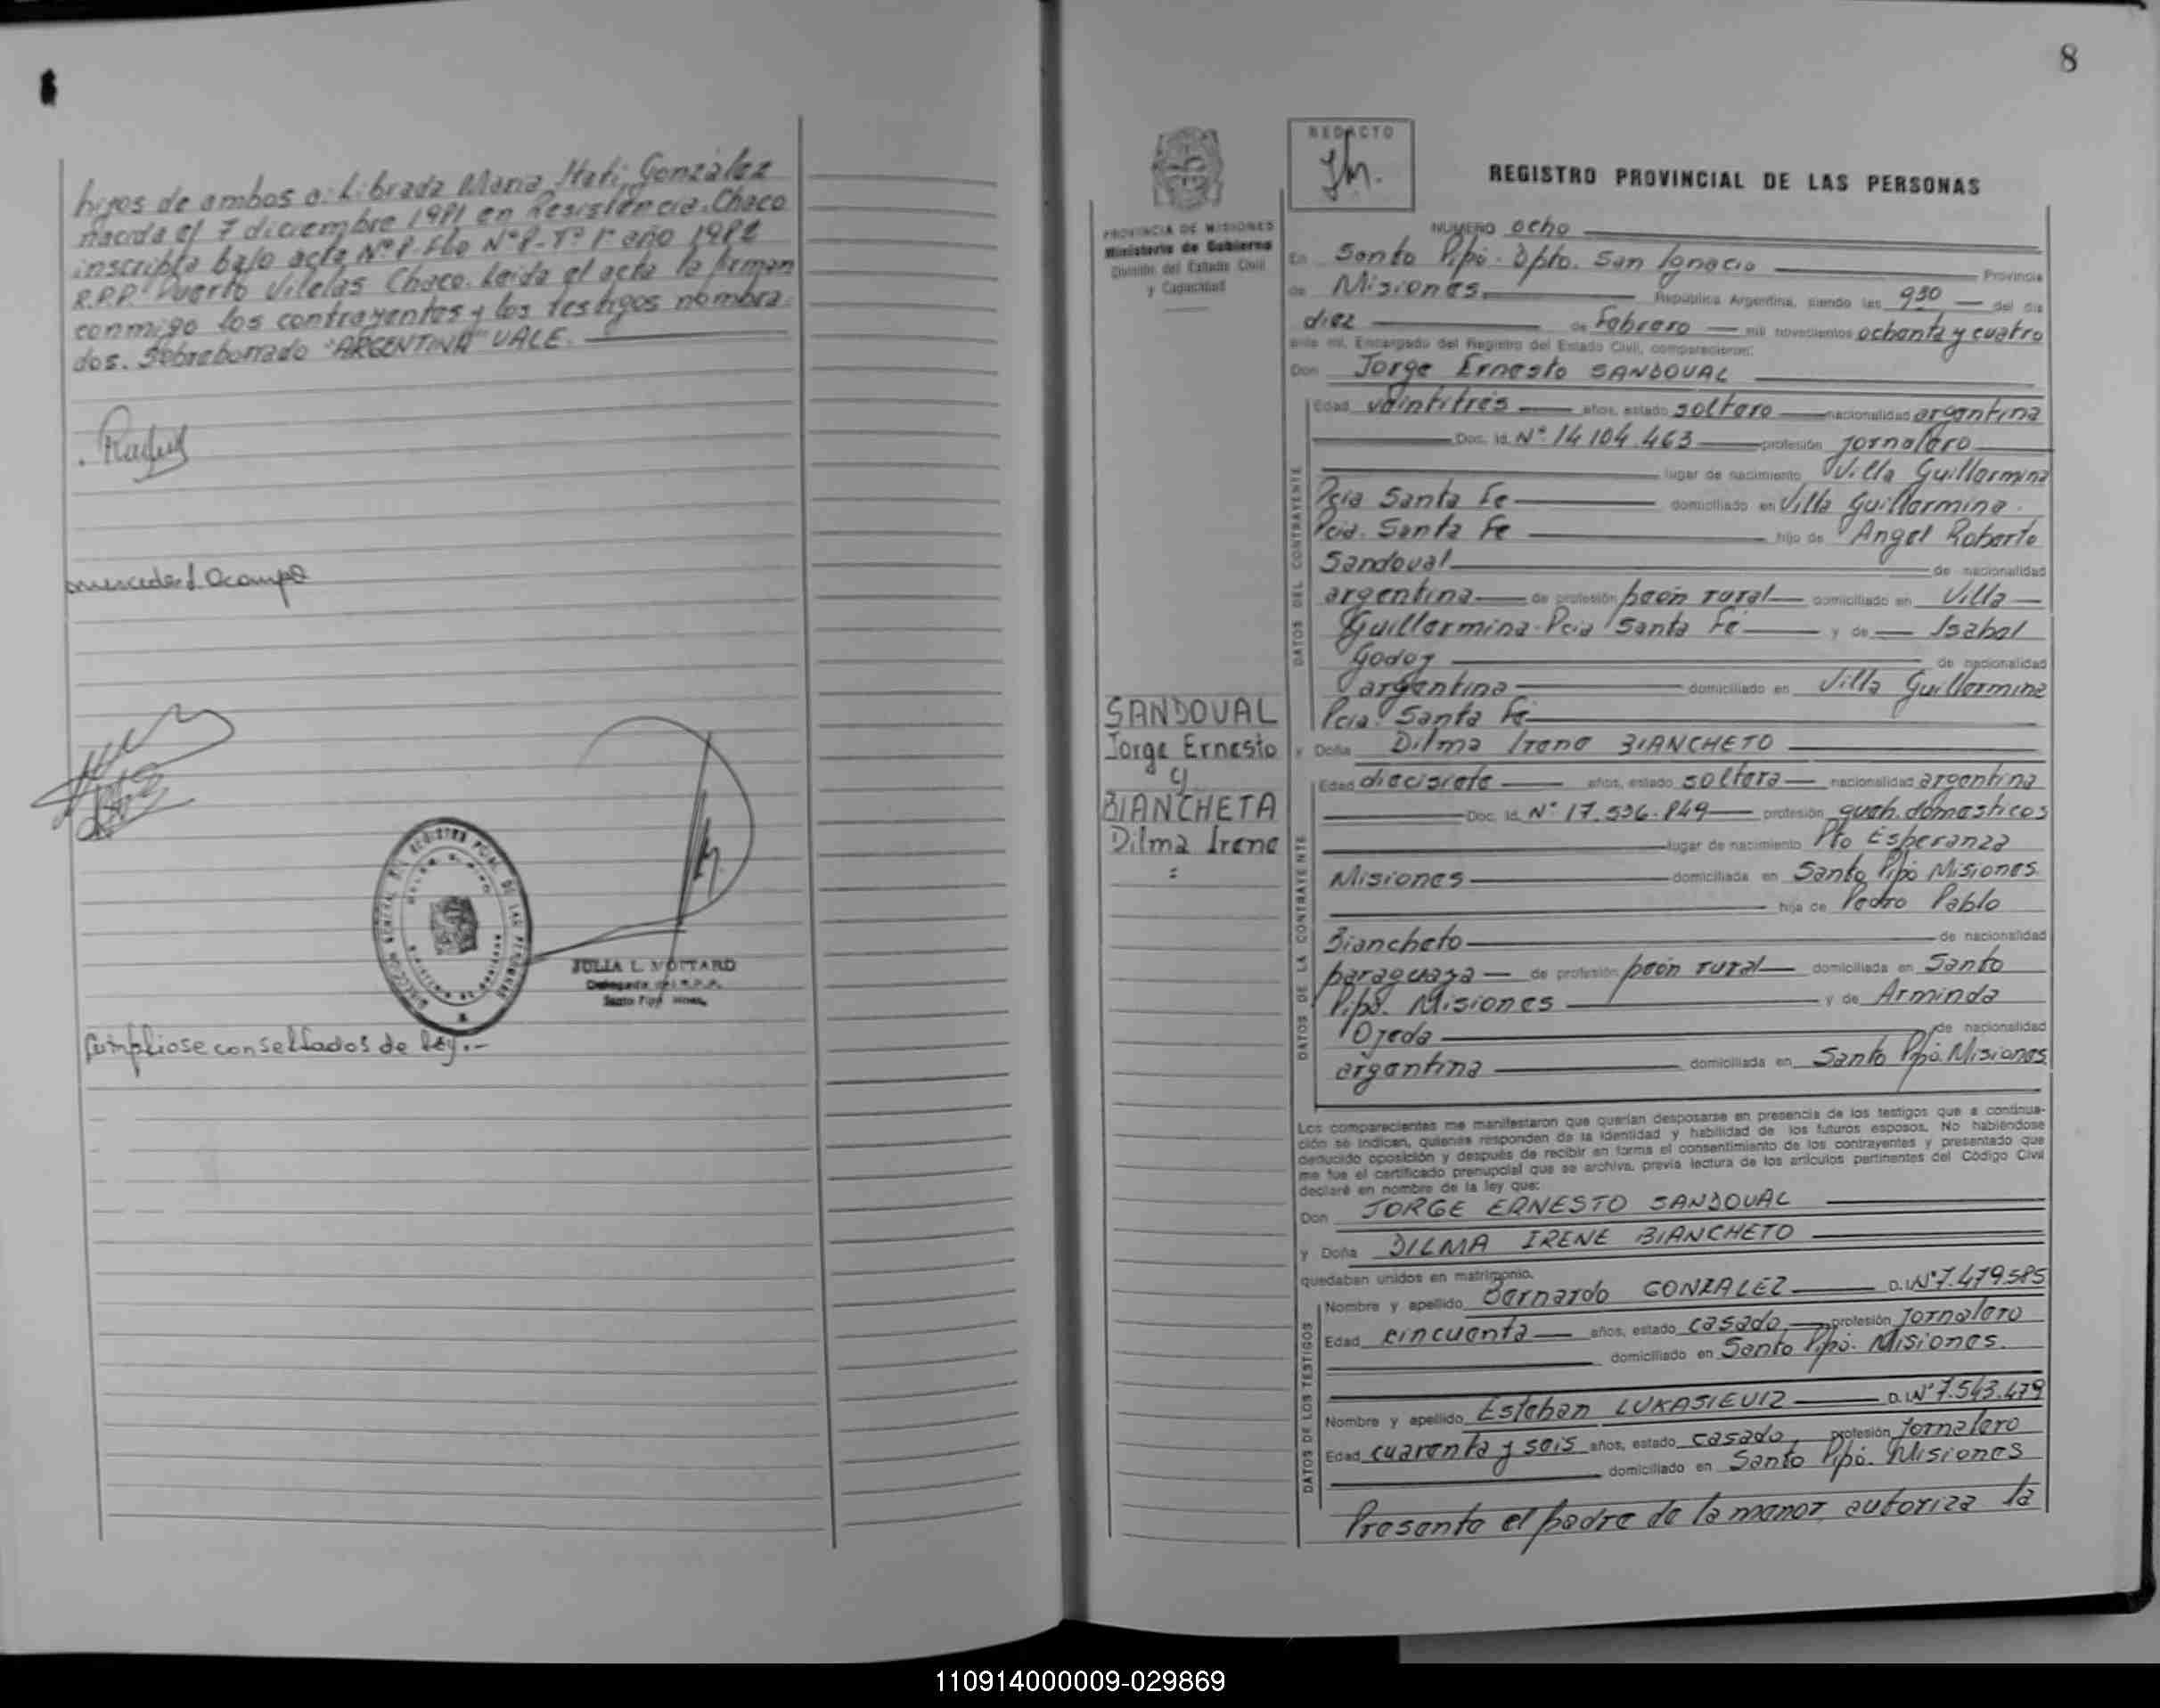 hijos de ambos a: Librada Maria Itati, Gonzalez
nacida el 7 diciembre 1981 en Resistencia. Chaco
inscripta bajo acta Nº 8. Flio Nº 8- Tº 1º año 1982
R.P.P. Puerto Vilelas Chaco. Leida el acta la firman
conmigo los contrayentes y los testigos nombra-
dos. Sobreborrado "ARGENTINA" VALE.
Ocampo
JULIA L. VOTTARD
Cumpliose con sellados de ley.-
8
REDACTO
PROVINCIA DE MISIONES
Ministerio de Gobierno
División del Estado Civil
y Capacidad
REGISTRO PROVINCIAL DE LAS PERSONAS
NUMERO ocho
En Santo Pipó. Dpto. San Ignacio Provincia
de Misiones República Argentina, siendo las 930 del día
diez de Febrero mil novecientos ochenta y cuatro
ante mí, Encargado del Registro del Estado Civil, comparecieron:
Don Jorge Ernesto SANDOVAL
DATOS DEL CONTRAYENTE
Edad veintitrés años, estado soltero nacionalidad argentina
Doc. Id. Nº 14.104.463 profesión jornalero
lugar de nacimiento Villa Guillermina
Pcia Santa Fe domiciliado en Villa Guillermina.
Pcia. Santa Fe hijo de Angel Roberto
Sandoval de nacionalidad
argentina de profesión peón rural domiciliado en Villa
Guillermina. Pcia Santa Fe y de Isabel
Godoy de nacionalidad
argentina domiciliado en Villa Guillermina
Pcia. Santa Fe
SANDOVAL
Jorge Ernesto
y
BIANCHETA
Dilma Irene
=
y Doña Dilma Irene BIANCHETO
DATOS DE LA CONTRAYENTE
Edad diecisiete años, estado soltera nacionalidad argentina
Doc. Id. Nº 17.536.849 profesión queh. domesticos
lugar de nacimiento Pto Esperanza
Misiones domiciliada en Santo Pipó Misiones.
hija de Pedro Pablo
Biancheto de nacionalidad
paraguaya de profesión peón rural domiciliada en Santo
Pipó. Misiones y de Arminda
Ojeda de nacionalidad
argentina domiciliada en Santo Pipó. Misiones
Los comparecientes me manifestaron que querían desposarse en presencia de los testigos que a continua-
ción se indican, quienes responden de la identidad y habilidad de los futuros esposos. No habiéndose
deducido oposición y después de recibir en forma el consentimiento de los contrayentes y presentado que
me fue el certificado prenupcial que se archiva, previa lectura de los artículos pertinentes del Código Civil
declaré en nombre de la ley que:
Don JORGE ERNESTO SANDOVAL
y Doña DILMA IRENE BIANCHETO
quedaban unidos en matrimonio.
DATOS DE LOS TESTIGOS
Nombre y apellido Bernardo GONZALEZ D.I.Nº 7.479.585
Edad cincuenta años, estado casado profesión Jornalero
domiciliado en Santo Pipó. Misiones.
Nombre y apellido Esteban LUKASIEVIZ D.I.Nº 7.543.479
Edad cuarenta y seis años, estado casado profesión Jornalero
domiciliado en Santo Pipó. Misiones
Presente el padre de la menor autoriza la
110914000009-029869